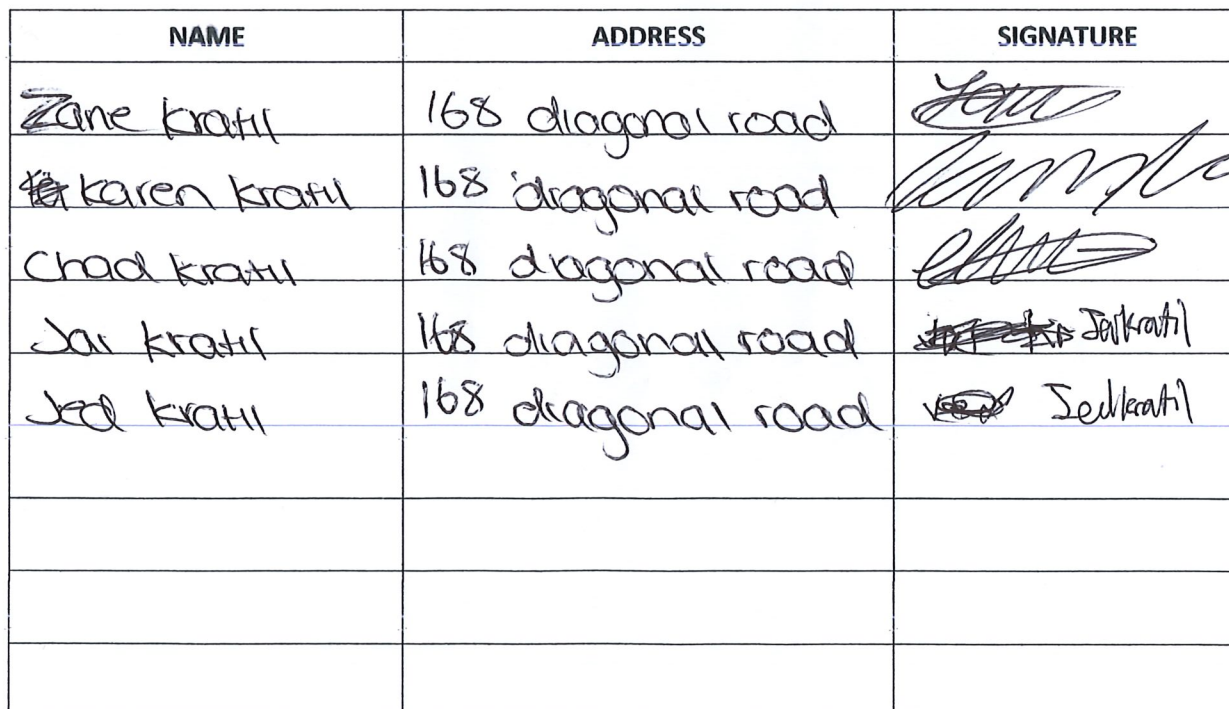 NAME ADDRESS SIGNATURE
Zane kratil 168 diagonal road
karen kratil 168 diagonal road
Chad kratil 168 diagonal road
Jai kratil 168 diagonal road Jaikratil
Jed kratil 168 diagonal road Jedkratil